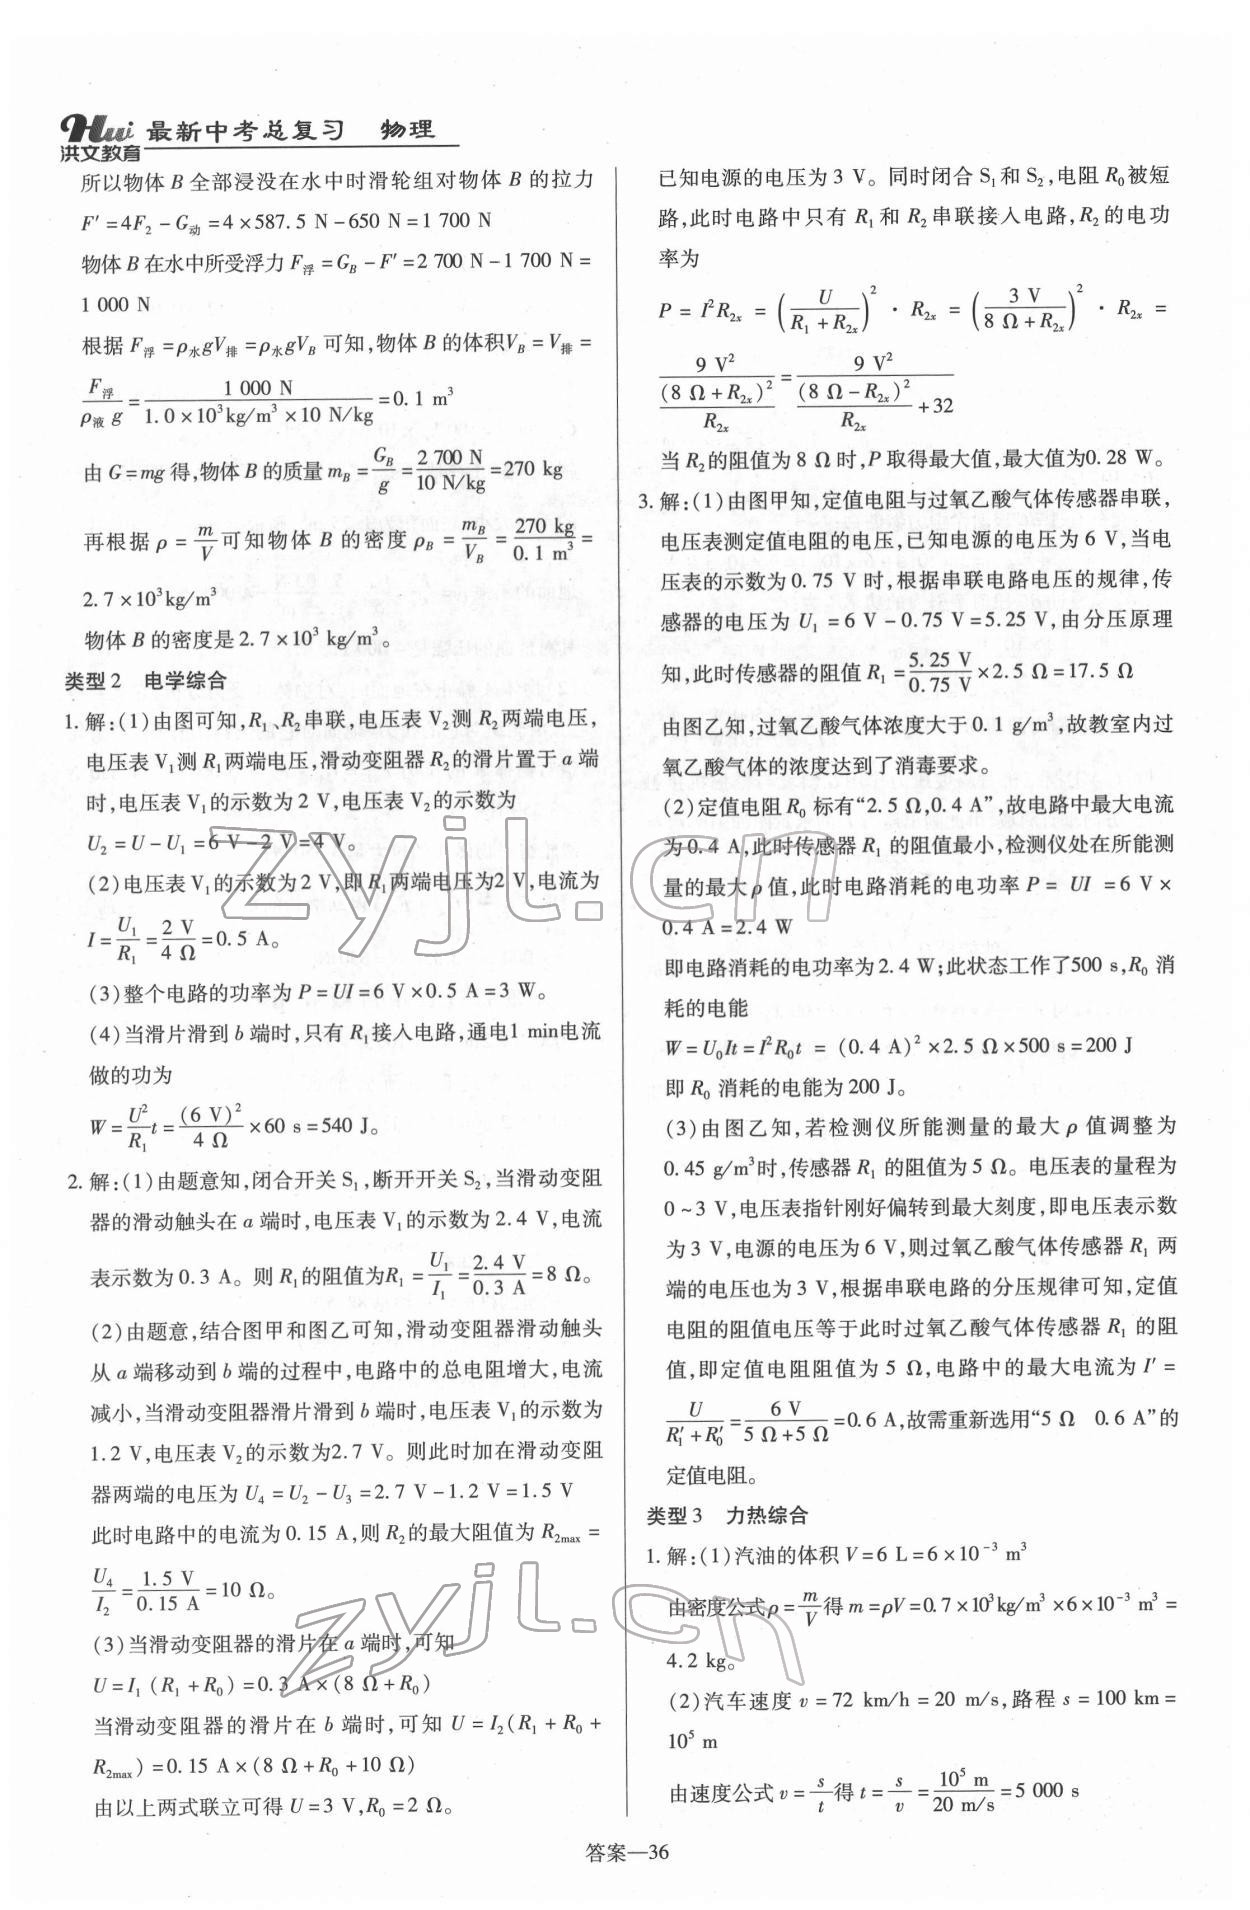 Hui 最新中考总复习 物理
洪文教育
所以物体 B 全部浸没在水中时滑轮组对物体 B 的拉力
F′=4F₂-G动=4×587.5 N-650 N=1 700 N
物体 B 在水中所受浮力 F浮=G_B-F′=2 700 N-1 700 N=
1 000 N
根据 F浮=ρ水gV排=ρ水gV_B 可知,物体 B 的体积V_B=V排=
F浮/(ρ液 g)=1 000 N/(1.0×10³kg/m³×10 N/kg)=0.1 m³
由 G=mg 得,物体 B 的质量 m_B=G_B/g=2 700 N/(10 N/kg)=270 kg
再根据 ρ=m/V可知物体 B 的密度 ρ_B=m_B/V_B=270 kg/0.1 m³=
2.7×10³kg/m³
物体 B 的密度是 2.7×10³ kg/m³。
类型 2 电学综合
1. 解:(1)由图可知,R₁、R₂串联,电压表 V₂测 R₂两端电压,
电压表 V₁测 R₁两端电压,滑动变阻器 R₂的滑片置于 a 端
时,电压表 V₁的示数为 2 V,电压表 V₂的示数为
U₂=U-U₁=6 V-2 V=4 V。
(2)电压表 V₁的示数为 2 V,即 R₁两端电压为2 V,电流为
I=U₁/R₁=2 V/4 Ω=0.5 A。
(3)整个电路的功率为 P=UI=6 V×0.5 A=3 W。
(4)当滑片滑到 b 端时,只有 R₁接入电路,通电1 min电流
做的功为
W=U²/R₁ t=(6 V)²/4 Ω×60 s=540 J。
2. 解:(1)由题意知,闭合开关 S₁,断开开关 S₂,当滑动变阻
器的滑动触头在 a 端时,电压表 V₁的示数为 2.4 V,电流
表示数为 0.3 A。则 R₁的阻值为R₁=U₁/I₁=2.4 V/0.3 A=8 Ω。
(2)由题意,结合图甲和图乙可知,滑动变阻器滑动触头
从 a 端移动到 b 端的过程中,电路中的总电阻增大,电流
减小,当滑动变阻器滑片滑到 b 端时,电压表 V₁的示数为
1.2 V,电压表 V₂的示数为2.7 V。则此时加在滑动变阻
器两端的电压为 U₄=U₂-U₃=2.7 V-1.2 V=1.5 V
此时电路中的电流为 0.15 A,则 R₂的最大阻值为 R₂max=
U₄/I₂=1.5 V/0.15 A=10 Ω。
(3)当滑动变阻器的滑片在 a 端时,可知
U=I₁(R₁+R₀)=0.3 A×(8 Ω+R₀)
当滑动变阻器的滑片在 b 端时,可知 U=I₂(R₁+R₀+
R₂max)=0.15 A×(8 Ω+R₀+10 Ω)
由以上两式联立可得 U=3 V,R₀=2 Ω。
已知电源的电压为 3 V。同时闭合 S₁和 S₂,电阻 R₀被短
路,此时电路中只有 R₁和 R₂串联接入电路,R₂的电功
率为
P=I²R₂ₓ=(U/(R₁+R₂ₓ))²·R₂ₓ=(3 V/(8 Ω+R₂ₓ))²·R₂ₓ=
9 V²/((8 Ω+R₂ₓ)²/R₂ₓ)=9 V²/((8 Ω-R₂ₓ)²/R₂ₓ+32)
当 R₂的阻值为 8 Ω时,P 取得最大值,最大值为0.28 W。
3. 解:(1)由图甲知,定值电阻与过氧乙酸气体传感器串联,
电压表测定值电阻的电压,已知电源的电压为 6 V,当电
压表的示数为 0.75 V 时,根据串联电路电压的规律,传
感器的电压为 U₁=6 V-0.75 V=5.25 V,由分压原理
知,此时传感器的阻值 R₁=5.25 V/0.75 V×2.5 Ω=17.5 Ω
由图乙知,过氧乙酸气体浓度大于 0.1 g/m³,故教室内过
氧乙酸气体的浓度达到了消毒要求。
(2)定值电阻 R₀ 标有“2.5 Ω,0.4 A”,故电路中最大电流
为 0.4 A,此时传感器 R₁ 的阻值最小,检测仪处在所能测
量的最大 ρ 值,此时电路消耗的电功率 P=UI=6 V×
0.4 A=2.4 W
即电路消耗的电功率为 2.4 W;此状态工作了500 s,R₀ 消
耗的电能
W=U₀It=I²R₀t=(0.4 A)²×2.5 Ω×500 s=200 J
即 R₀ 消耗的电能为 200 J。
(3)由图乙知,若检测仪所能测量的最大 ρ 值调整为
0.45 g/m³时,传感器 R₁ 的阻值为 5 Ω。电压表的量程为
0~3 V,电压表指针刚好偏转到最大刻度,即电压表示数
为 3 V,电源的电压为 6 V,则过氧乙酸气体传感器 R₁ 两
端的电压也为 3 V,根据串联电路的分压规律可知,定值
电阻的阻值电压等于此时过氧乙酸气体传感器 R₁ 的阻
值,即定值电阻阻值为 5 Ω,电路中的最大电流为 I′=
U/(R₁′+R₀′)=6 V/(5 Ω+5 Ω)=0.6 A,故需重新选用“5 Ω 0.6 A”的
定值电阻。
类型 3 力热综合
1. 解:(1)汽油的体积 V=6 L=6×10⁻³ m³
由密度公式ρ=m/V得 m=ρV=0.7×10³kg/m³×6×10⁻³ m³=
4.2 kg。
(2)汽车速度 v=72 km/h=20 m/s,路程 s=100 km=
10⁵ m
由速度公式 v=s/t得 t=s/v=10⁵ m/(20 m/s)=5 000 s
答案—36
zyjl.cn
zyjl.cn